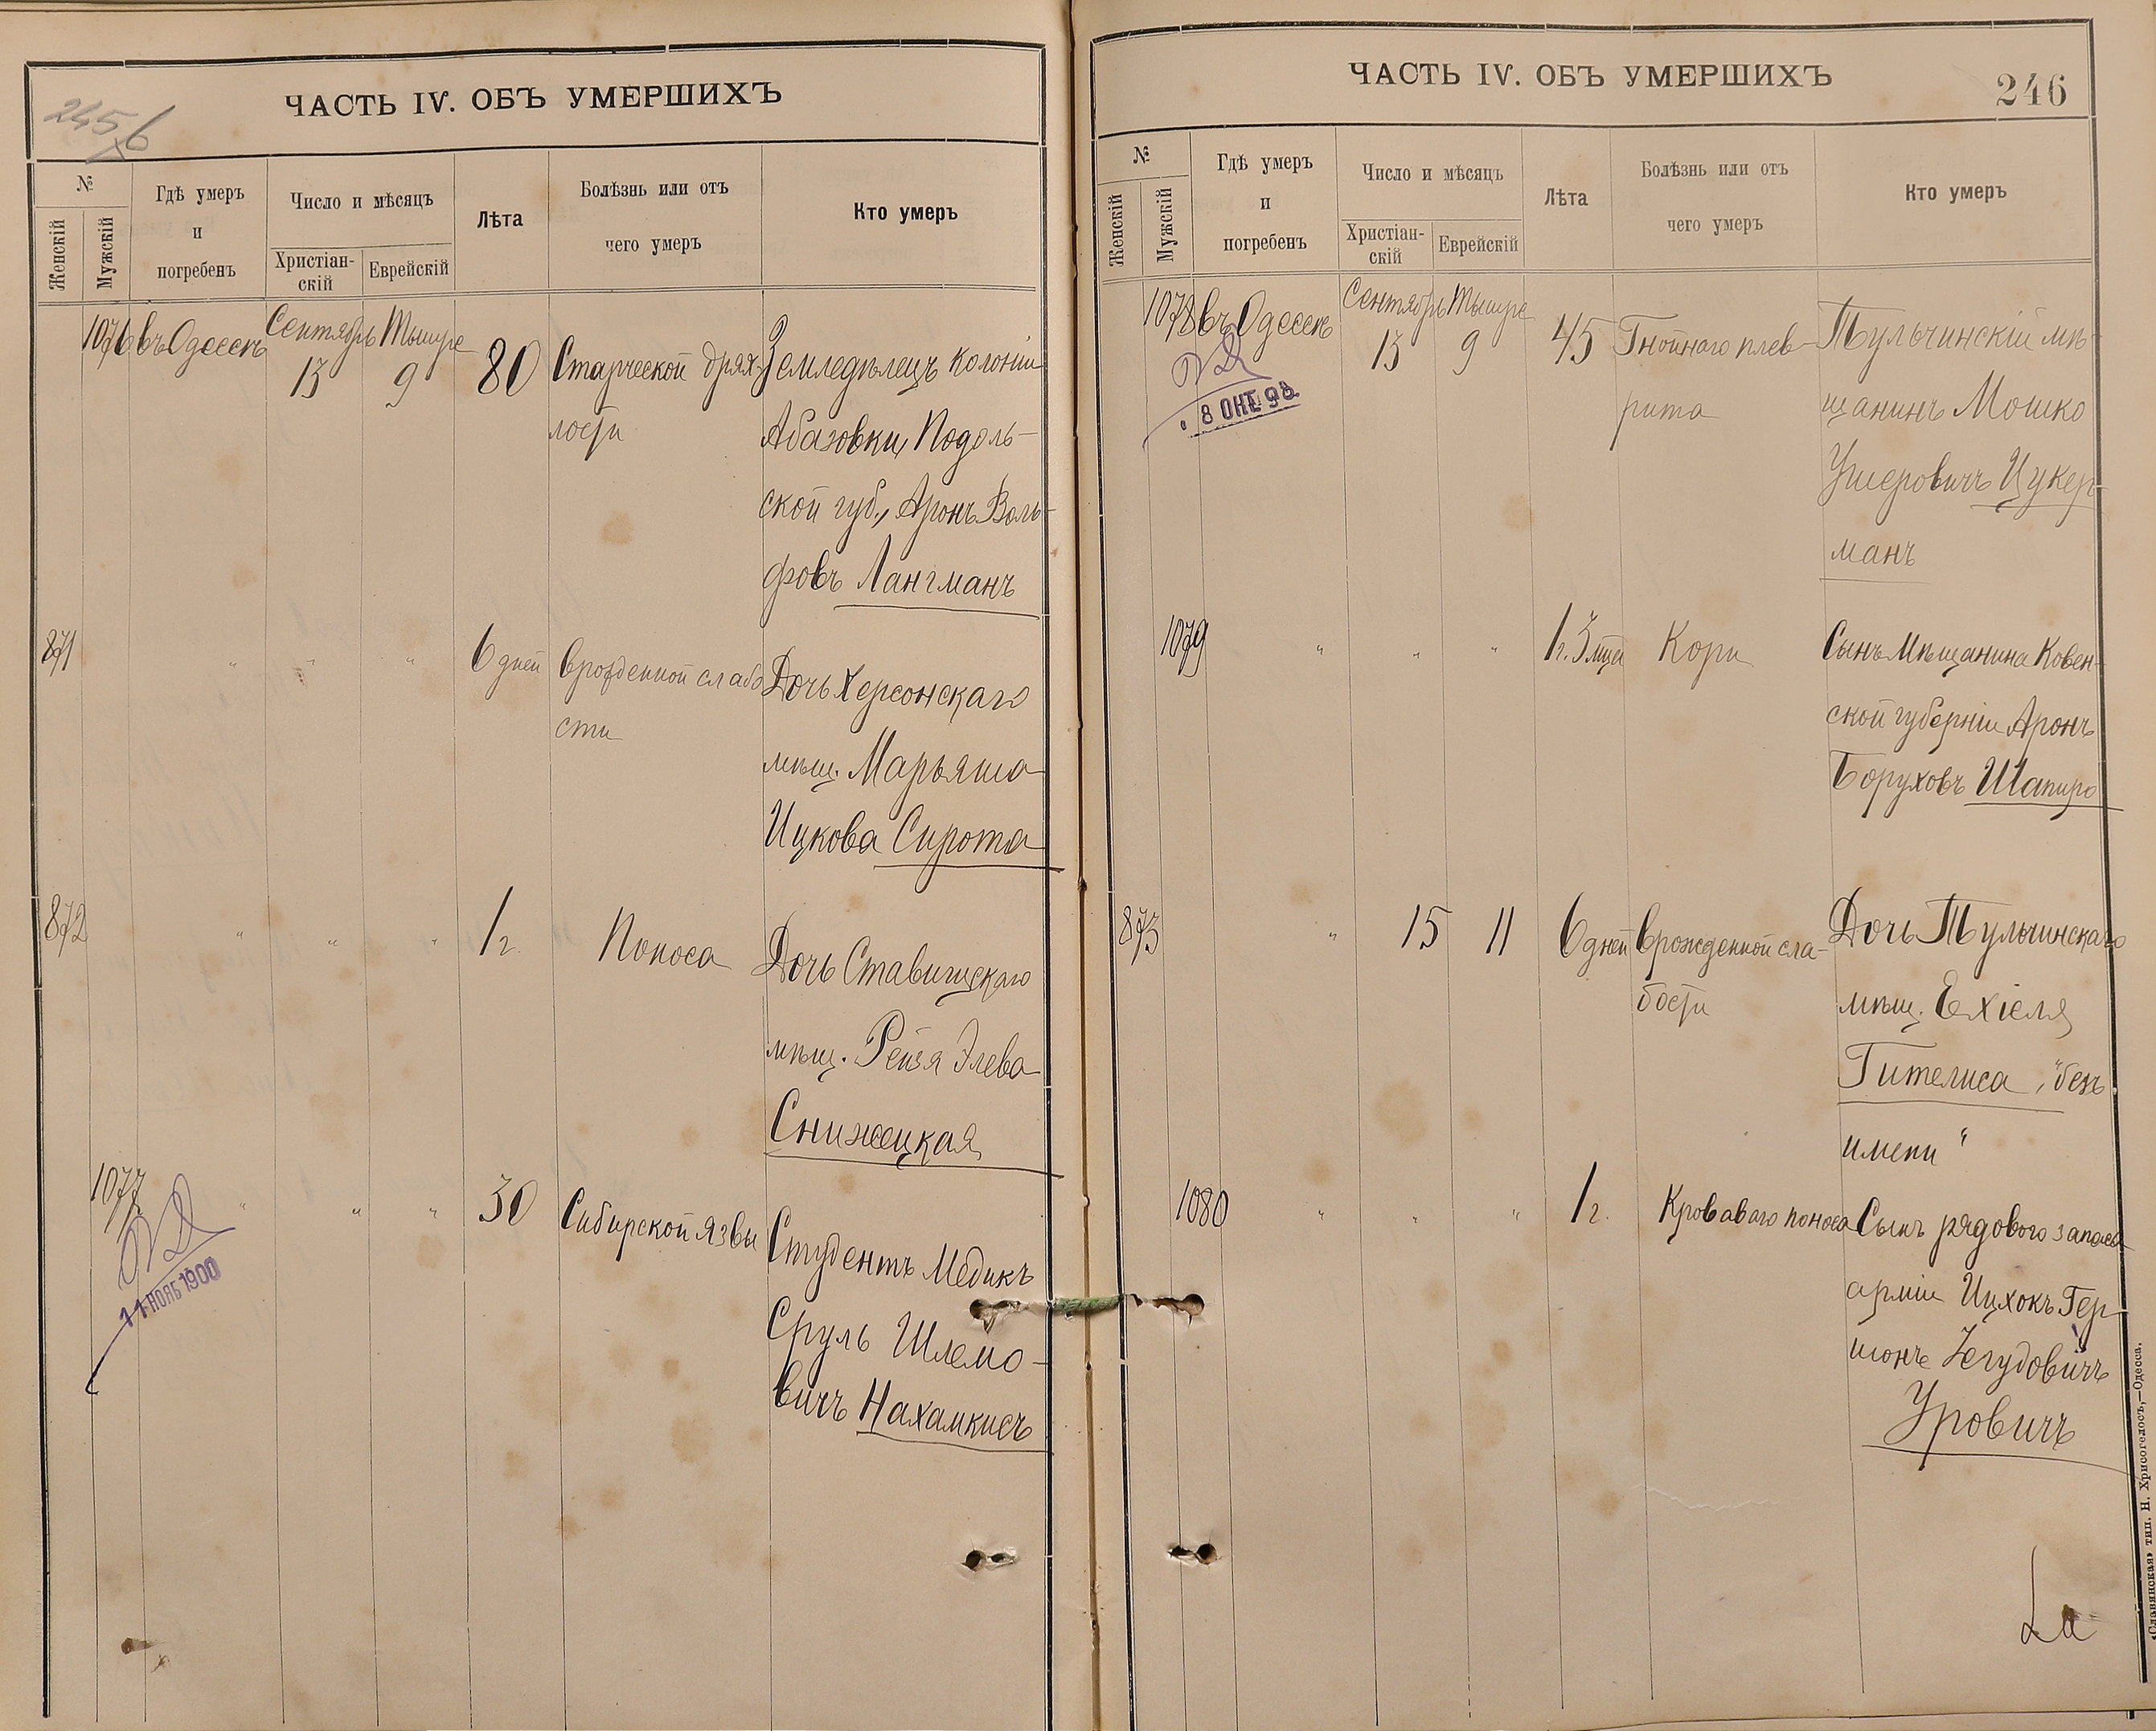 245 б
ЧАСТЬ IV. ОБЪ УМЕРШИХЪ
№
Женскій
Мужскій
Гдѣ умеръ
и
погребенъ
Число и мѣсяцъ
Христіан-
скій
Еврейскій
Лѣта
Болѣзнь или отъ
чего умеръ
Кто умеръ
1076 въ Одессѣ Сентябрь 13 Тышре 9 80 Старческой дрях-
лости
Земледѣлецъ колоніи
Абазовки, Подоль-
ской губ., Аронъ Воль-
фовъ Лангманъ
871 " " " 6 дней Врожденной слабо
сти
Дочь Херсонскаго
мѣщ. Марьяша
Ицкова Сирота
872 " " " 1 г. Поноса
Дочь Ставищскаго
мѣщ. Рейзя Элева
Снижецкая
1077 " " " 30 Сибирской язвы
11 НОЯБ 1900
Студентъ Медикъ
Сруль Шлемо-
вичъ Нахамкисъ
ЧАСТЬ IV. ОБЪ УМЕРШИХЪ
246
№
Женскій
Мужскій
Гдѣ умеръ
и
погребенъ
Число и мѣсяцъ
Христіан-
скій
Еврейскій
Лѣта
Болѣзнь или отъ
чего умеръ
Кто умеръ
1078 въ Одессѣ Сентябрь 13 Тышре 9 45 Гнойнаго плев-
рита
8 ОКТ 98
Тульчинскій мѣ-
щанинъ Мошко
Ушеровичъ Цукер-
манъ
1079 " " " 1 г. 3 мца Кори
Сынъ Мѣщанина Ковен-
ской губерніи Аронъ
Боруховъ Шапиро
873 " 15 11 6 дней Врожденной сла-
бости
Дочь Тульчинскаго
мѣщ. Ехіеля
Гителиса, "безъ
имени"
1080 " " " 1 г. Кроваваго поноса
Сынъ рядового запаса
арміи Ицхокъ Гер-
шонъ Іегудовичъ
Уровичъ
«Славянская» тип. Н. Хрисогелосъ,—Одесса.